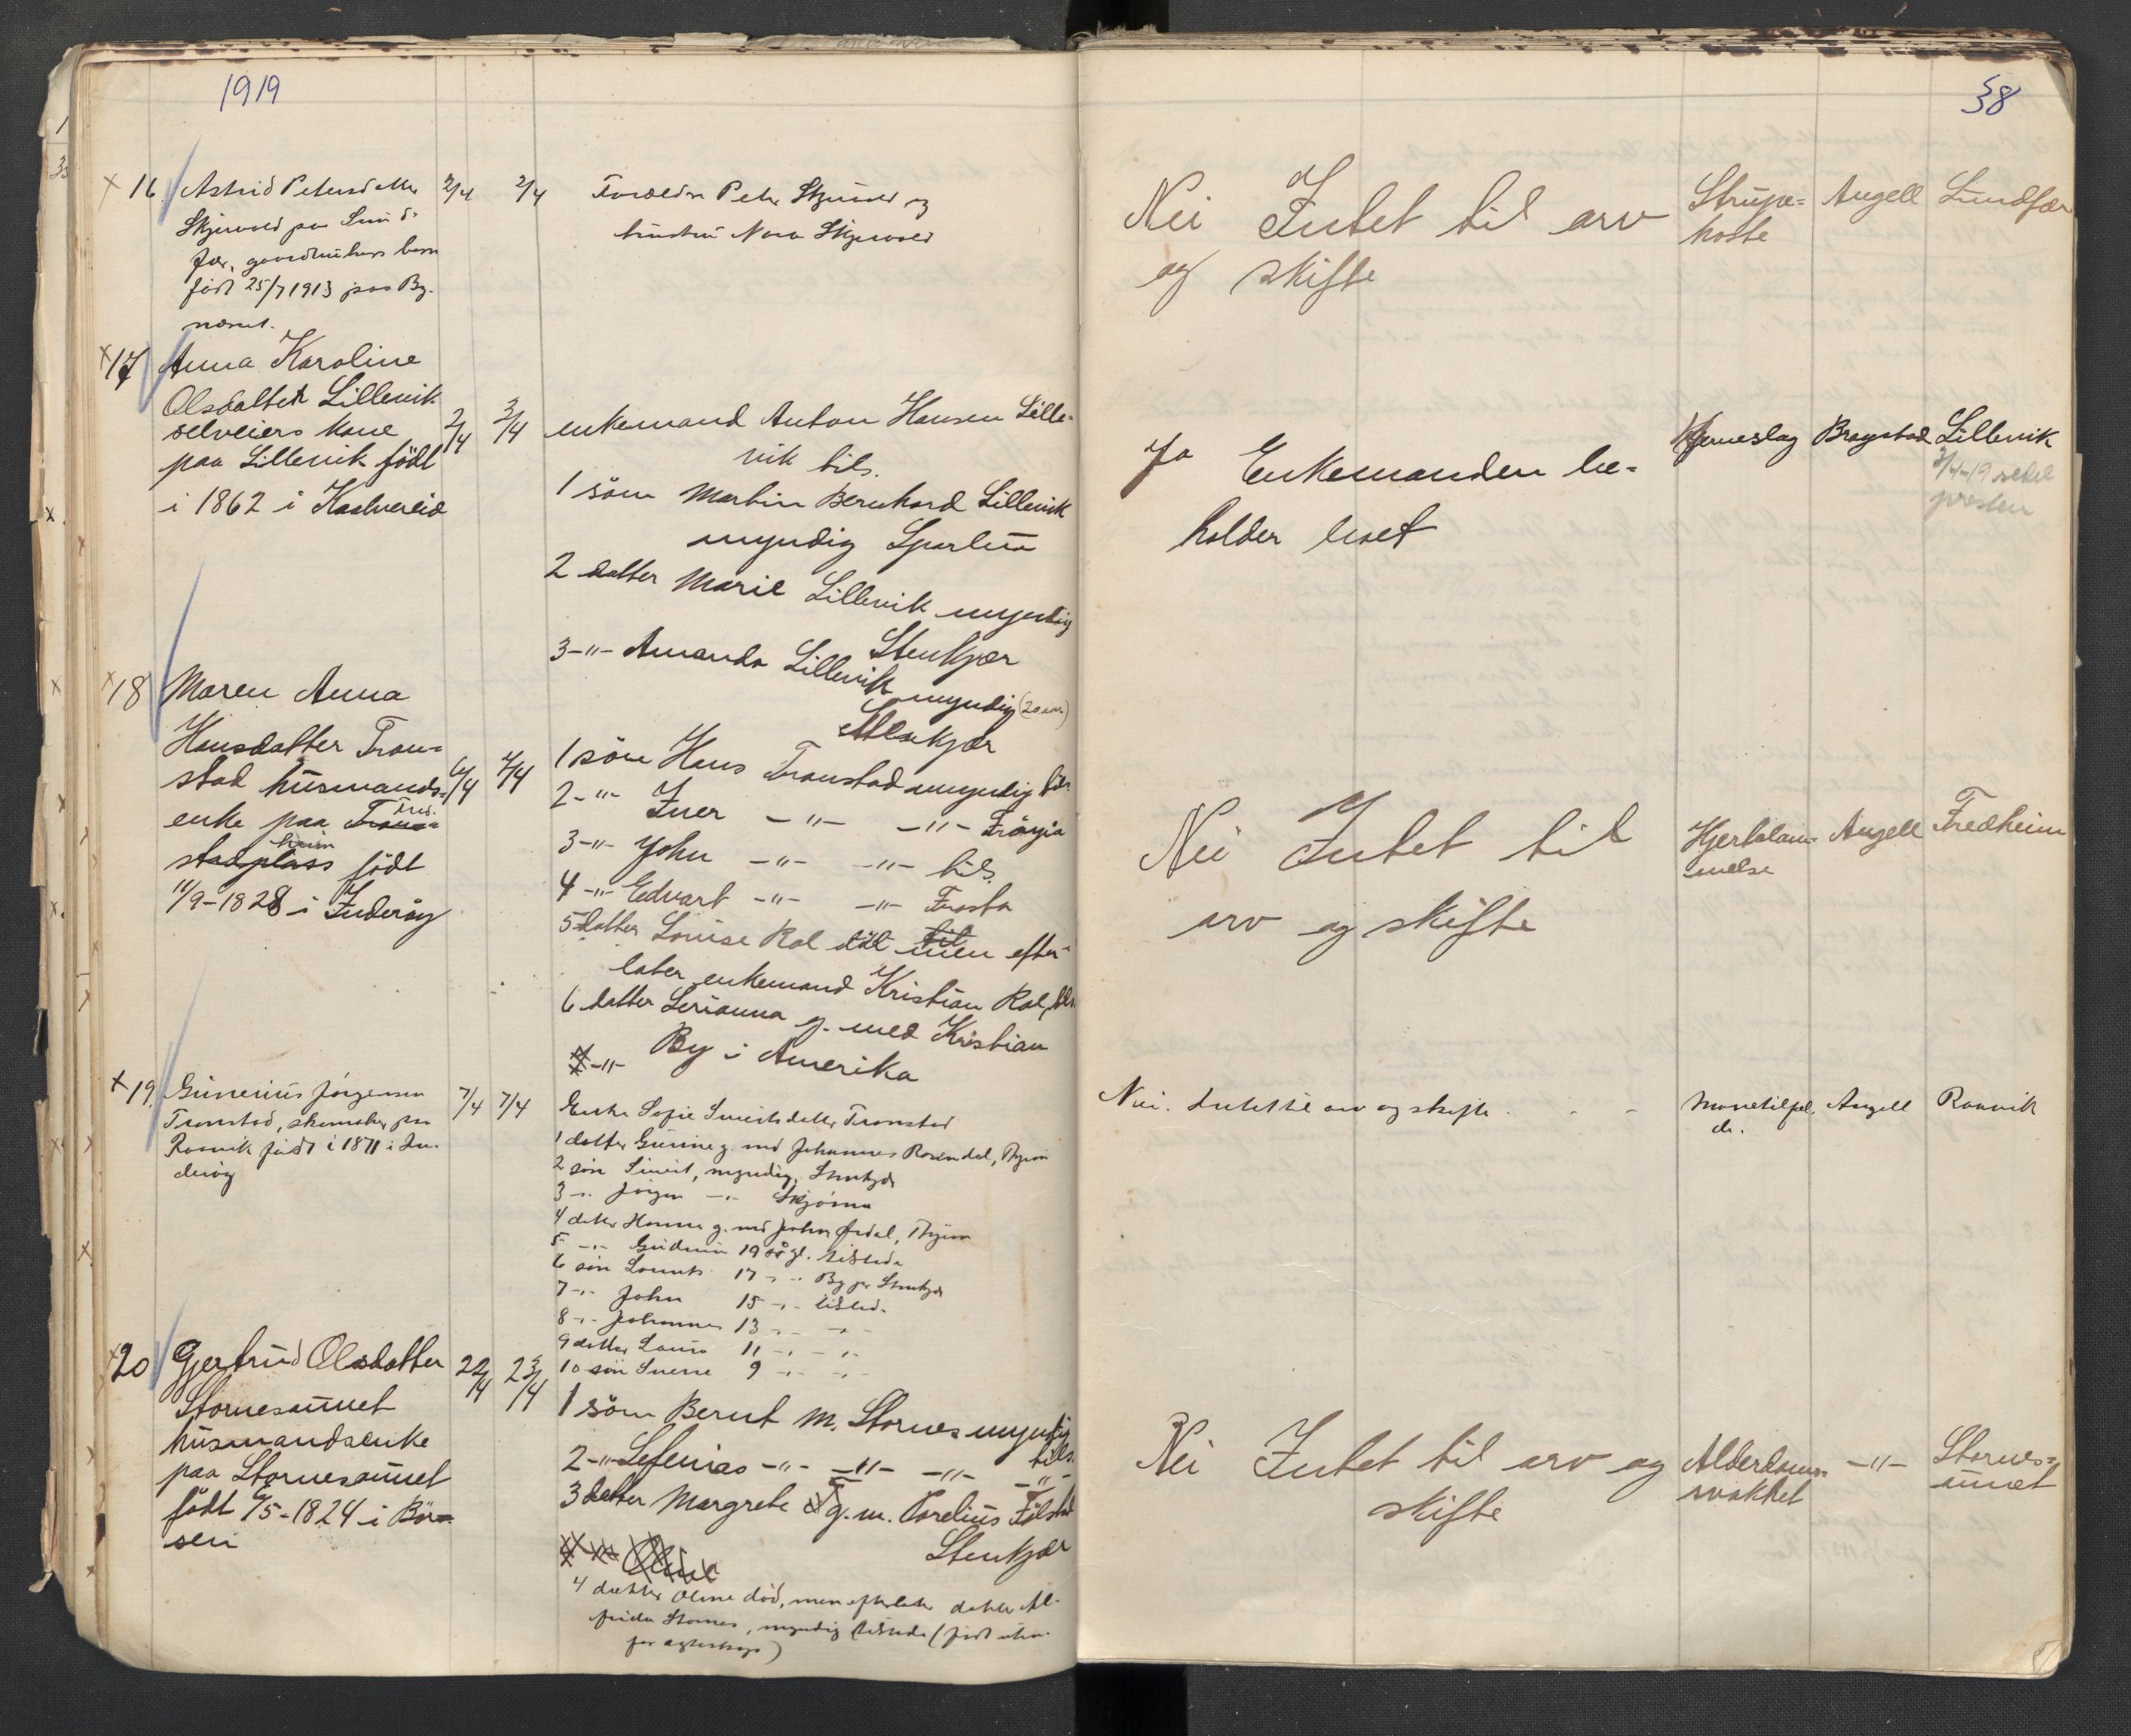 1919
38
16 Astrid Petersdatter 2/4 2/4 Forældre Peter Skjervold og
Skjervold paa Lund- hustru Nora Skjervold
fær, gaardbrukers barn
født 25/7 1913 paa By-
næset.
Nei Intet til arv
og skifte
Strupe-
hoste
Angell Lundfær
17 Anna Karoline
Olsdatter Lillevik
selveiers kone 2/4 3/4
paa Lillevik født
i 1862 i Kolvereid
enkemand Anton Hansen Lille-
vik tils.
1 søn Martin Bernhard Lillevik
myndig Sparbu
2 datter Marie Lillevik myndig
Stenkjær
3 -"- Amanda Lillevik
myndig (20 aar)
Stenkjær
Ja Enkemanden be-
holder boet
Hjerneslag Bragstad Lillevik
3/4-19 seddel
presten
18 Maren Anna
Hansdatter Tron-
stad husmands- 6/4 7/4
enke paa Tron- Fred-
stadplass heim født
11/9-1828 i Inderøy
1 søn Hans Tronstad myndig tils.
2 -"- Iver -"- -"- Frøyia
3 -"- John -"- -"- tils.
4 -"- Edvart -"- -"- Frosta
5 datter Louise Rol død men efter-
later enkemand Kristian Rol, tils.
6 datter Serianna g. med Kristian
By i Amerika
Nei Intet til
arv og skifte
Hjertelam-
melse
Angell Fredheim
19. Gunerius Jørgensen 7/4 7/4
Tronstad, skomaker paa
Ramvik født i 1871 i In-
derøy
Enke Sofie Sivertsdatter Tronstad
1 datter Gurine g. med Johannes Rosendal, Thjem
2 søn Sivert, myndig, Stenkjær
3 -"- Jørgen -"- Skjørna
4 datter Hanna g. med John Ørdal, Thjem
5 -"- Gudrun 19 år gl. tilstede
6 søn Lorents 17 -"- By pr Stenkjær
7 -"- John 15 -"- tilsted.
8 -"- Johannes 13 -"- -"-
9 datter Laura 11 -"- -"-
10 søn Sverre 9 -"- -"-
Nei. Intet til arv og skifte.
Angell Ramvik
20 Gjertrud Olsdatter 22/4 23/4
Stornesaunet
husmandsenke
paa Stornesaunet
født 6/5-1824 i Bør-
sen
1 søn Bernt M. Stornes myndig
tils.
2 -"- Lefenias -"- -"- -"- -"-
3 datter Margrete g. m. Torelius Følstad
Stenkjær
4 datter Oline død, men efterlater datter Al-
frida Stornes, myndig tilstede (født uten-
for ægteskap)
Nei Intet til arv og
skifte
Alderdoms-
svakhet
-"- Stornes-
aunet